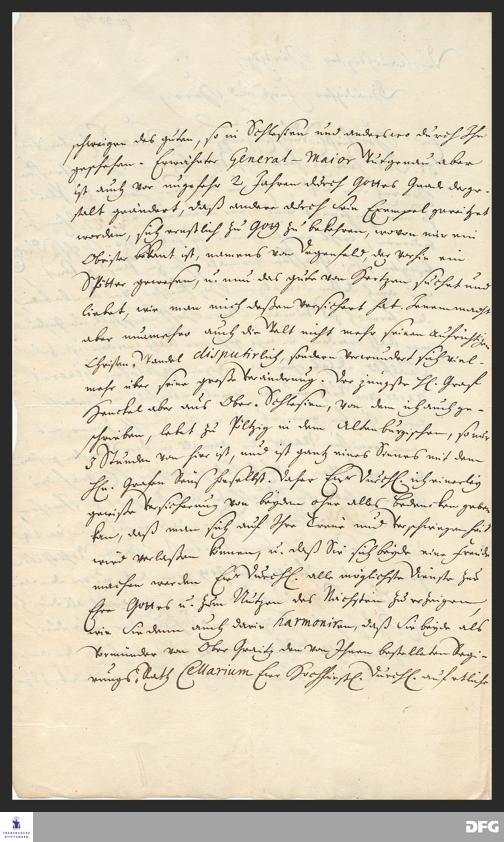 schweigen des guten, so in Schlesien und anderswo durch Ihn
geschehen. Erwähnter General-Maior Nützenau aber
ist auch vor ungefehr 2 Jahren durch Gottes Gnade derge-
stalt geändert, daß andere durch sein Exempel gereitzet
worden, sich ernstlich zu Gott zu bekehren, wovon mir ein
Obrister bekant ist, namens von Degenfeld, der vorhin ein
Spötter gewesen, u. nun das gute von Hertzen suchet und
liebet, wie man mich deßen versichert hat. Jenem macht
aber nunmehro auch die Welt nicht mehr seinen aufrichtigen
Christen-Wandel disputirlich, sondern verwundert sich viel-
mehr über seine große Veränderung. Der jüngste H. Graf
Henckel aber aus Ober-Schlesien, von dem ich auch ge-
schrieben, lebet zu Pöltzig in dem Altenburgischen, so nur
3 Stunden von hier ist, und ist gantz eines Sinnes mit dem
Hn. Grafen Reuß hieselbst. Daher Eur Durchl. ich einerley
gewiße Versicherung von beyden ohne alles bedencken geben
kan, daß man sich auf Ihre Treue und Verschwiegenheit
wird verlaßen können, u. daß Sie sich beyde eine Freude
machen werden Eur Durchl. alle möglichste Dienste zur
Ehre Gottes u. zum Nutzen des Nächsten zu erzeigen,
wie Sie denn auch darin harmoniren, daß Sie beyde als
Vormünder von Ober Graitz den von Ihnen bestelleten Regi-
rungs-Rath Cellarium Eur Hochfürstl. Durchl. auf etliche
FRANCKESCHE
STIFTUNGEN
DFG